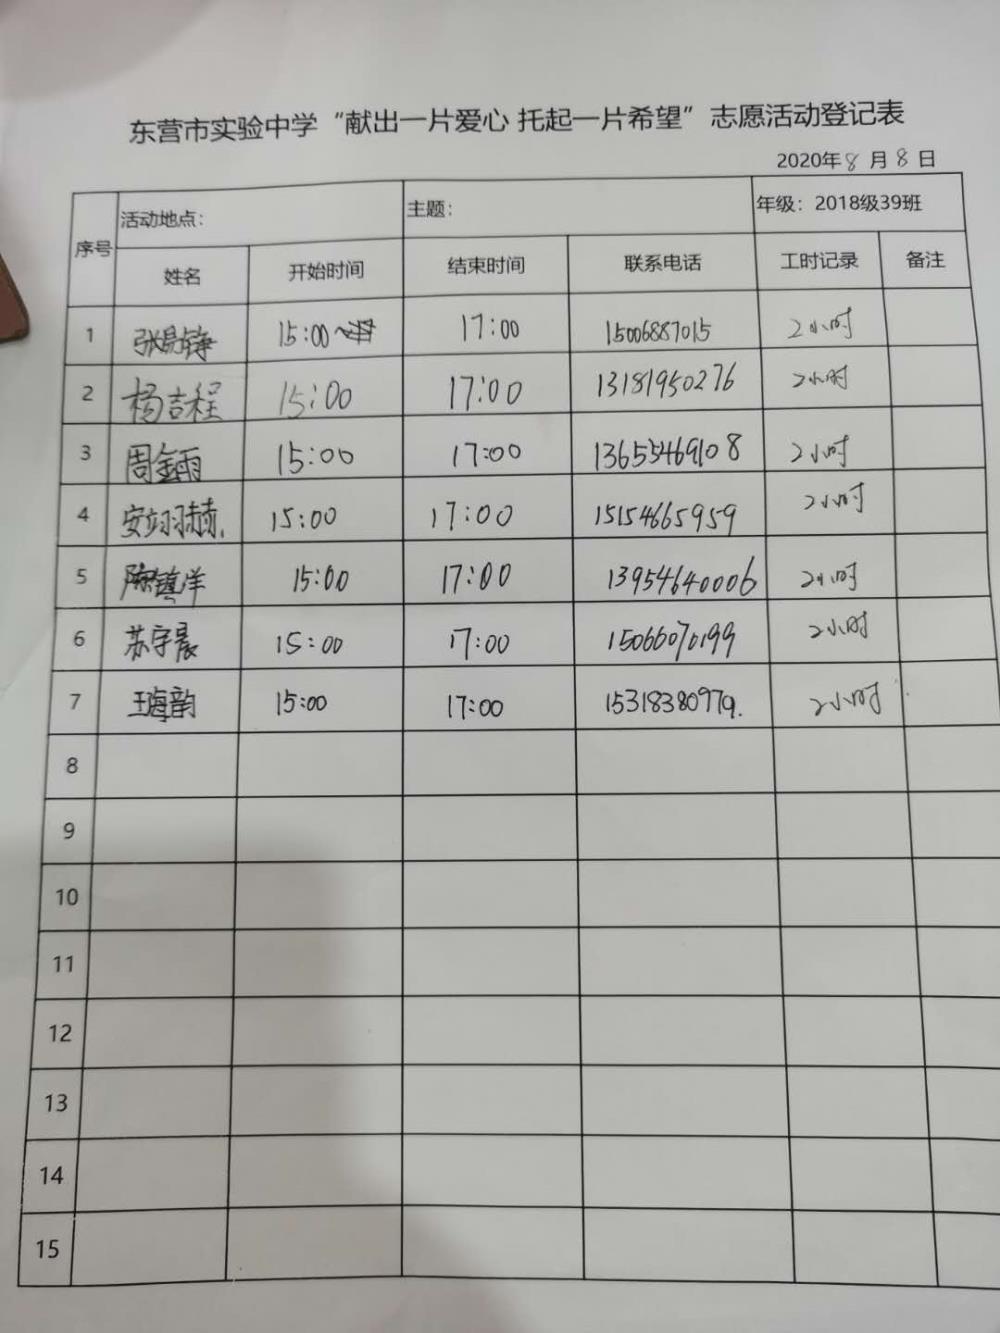 东营市实验中学“献出一片爱心 托起一片希望”志愿活动登记表
2020年8月8日
序号 活动地点： 主题： 年级：2018级39班
姓名 开始时间 结束时间 联系电话 工时记录 备注
1 张易铮 15:00 17:00 15006887015 2小时
2 杨吉程 15:00 17:00 13181950276 2小时
3 周金雨 15:00 17:00 13655469108 2小时
4 安翊赫 15:00 17:00 15154665959 2小时
5 陈镇洋 15:00 17:00 13954640006 2小时
6 苏宇晨 15:00 17:00 15066070199 2小时
7 王海韵 15:00 17:00 15318380979. 2小时
8
9
10
11
12
13
14
15